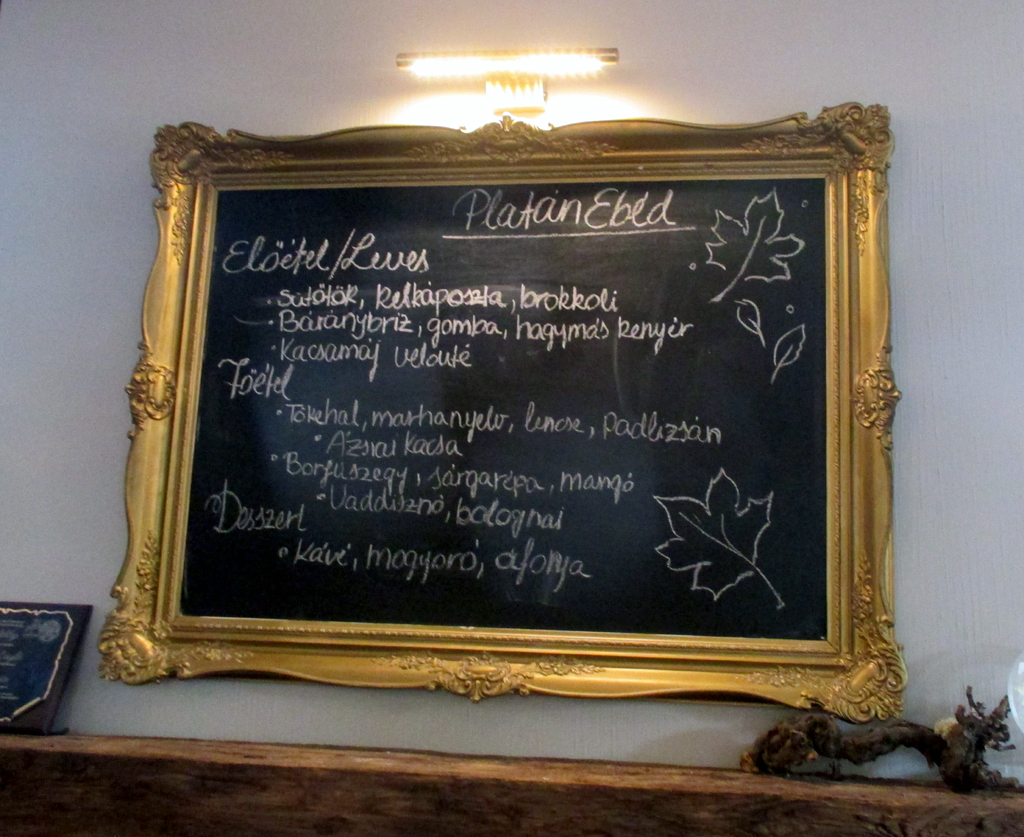 Platán Ebéd
Előétel/Leves
· Sütőtök, kelkáposzta, brokkoli
· Báránybríz, gomba, hagymás kenyér
· Kacsamáj velouté
Főétel
· Tőkehal, marhanyelv, lencse, Padlizsán
· Ázsiai kacsa
· Borjúszegy, sárgarépa, mangó
· Vaddisznó, bolognai
Desszert
· Kávé, mogyoró, áfonya